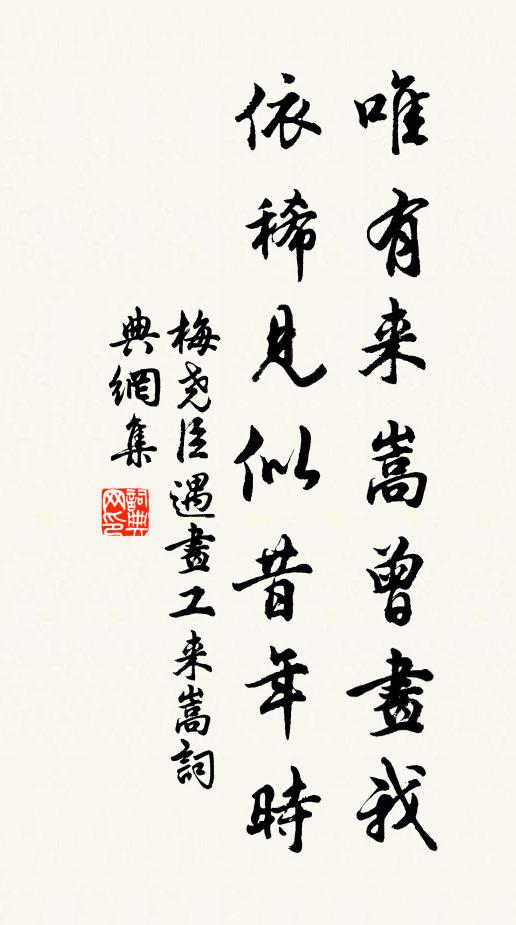 唯有来嵩曾畫我
依稀見似昔年時
梅尧臣遇畫工来嵩詞
典網集
詞典网印